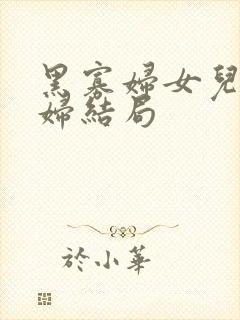 黑寡婦女兒
婦結局
於小華